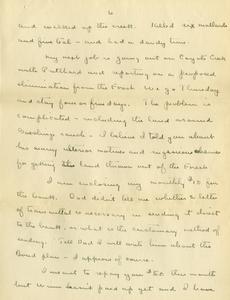 6
and up the creek. Killed six mallards
and five teal - and had a dandy time.
My next job is going out on Coyote Creek
with and reporting on a proposed
elimination from the Forest. We go Thursday
and stay four or five days. The problem is
complicated - including the land around
ranch - I believe I told you about
his many ulterior motives and ingenious
for getting this land thrown out of the Forest.
I am enclosing my monthly $10 for
the bank. Dad didn't tell me whether a letter
of transmittal is necessary in sending it direct
to the bank, or what is the customary method of
sending. Tell Dad I will write him about the
Bond plan - I approve of course.
I meant to repay you $50 this month
but paid up yet and I have